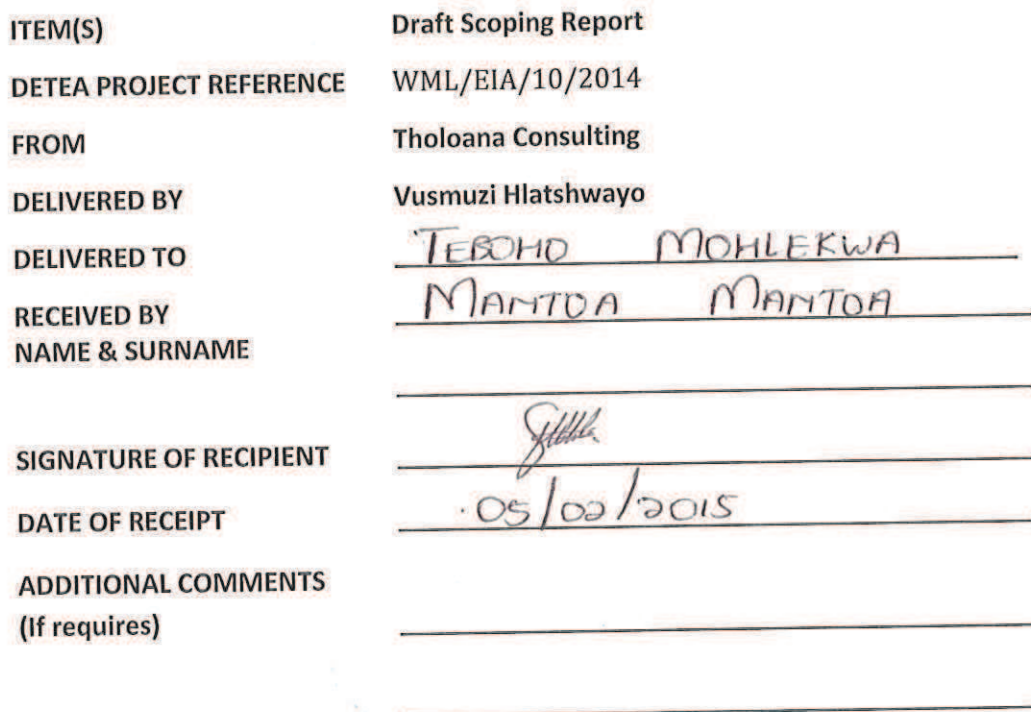 ITEM(S) Draft Scoping Report
DETEA PROJECT REFERENCE WML/EIA/10/2014
FROM Tholoana Consulting
DELIVERED BY Vusmuzi Hlatshwayo
DELIVERED TO TEBOHO MOHLEKWA
RECEIVED BY MANTOA MANTOA
NAME & SURNAME
SIGNATURE OF RECIPIENT
DATE OF RECEIPT 05/02/2015
ADDITIONAL COMMENTS
(If requires)